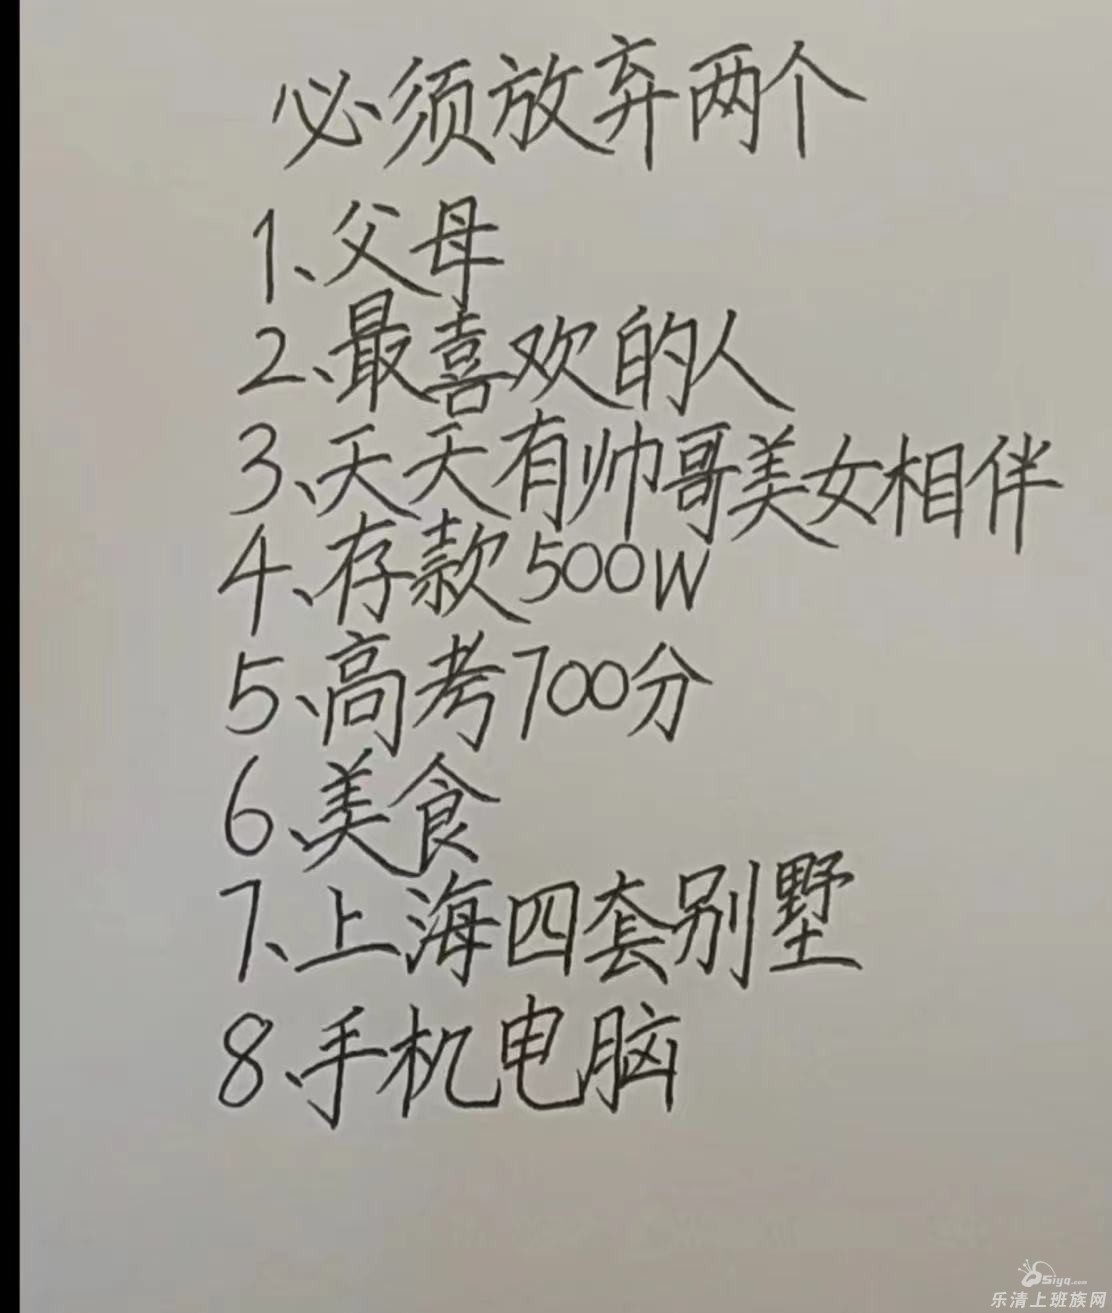 必须放弃两个
1、父母
2、最喜欢的人
3、天天有帅哥美女相伴
4、存款500W
5、高考700分
6、美食
7、上海四套别墅
8、手机电脑
Siyq.com
乐清上班族网